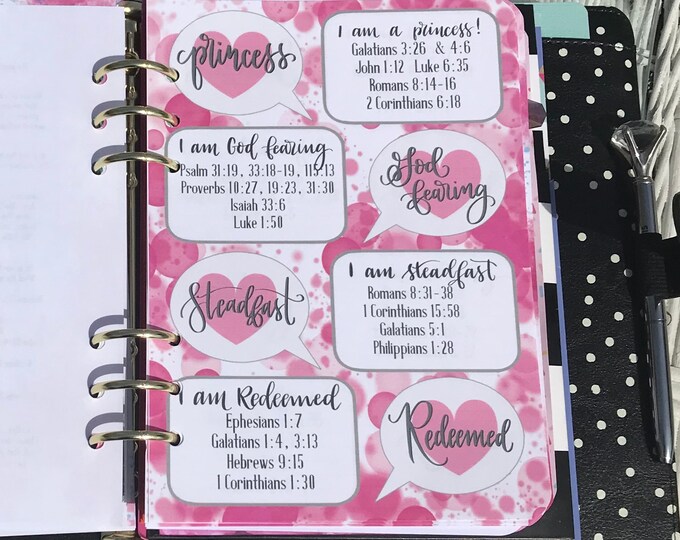 princess
I am a princess!
Galatians 3:26 & 4:6
John 1:12 Luke 6:35
Romans 8:14-16
2 Corinthians 6:18
I am God fearing
Psalm 31:19, 33:18-19, 115:13
Proverbs 10:27, 19:23, 31:30
Isaiah 33:6
Luke 1:50
God
fearing
Steadfast
I am steadfast
Romans 8:31-38
1 Corinthians 15:58
Galatians 5:1
Philippians 1:28
I am Redeemed
Ephesians 1:7
Galatians 1:4, 3:13
Hebrews 9:15
1 Corinthians 1:30
Redeemed